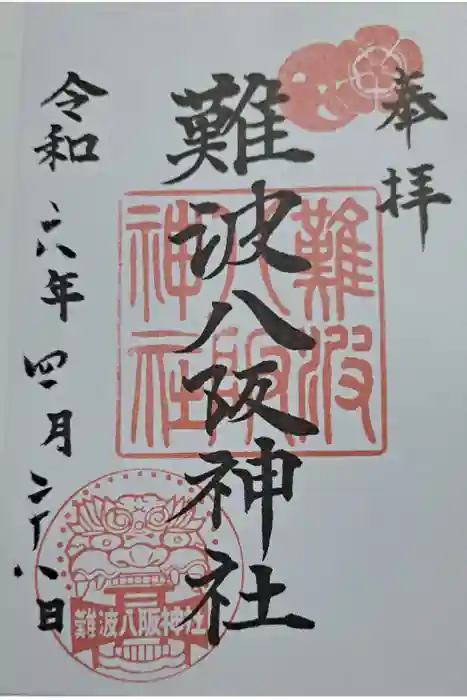 奉拝
難波八阪神社
令和六年四月二十八日
難波
八阪
神社
難波八阪神社